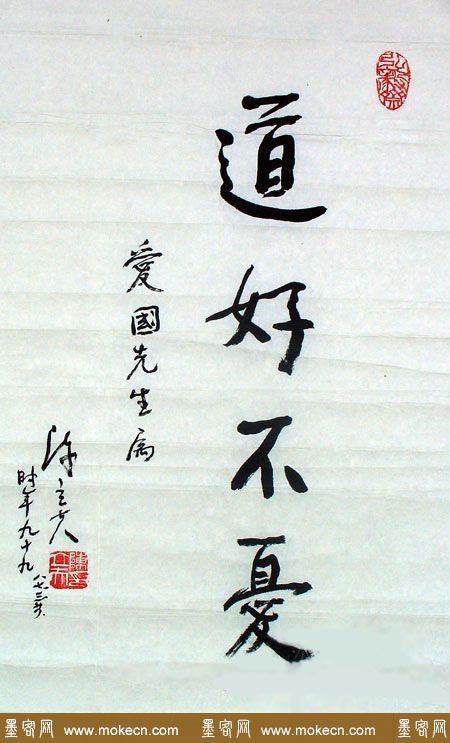 道好不憂
愛國先生属
陳立夫
时年九十九
墨客网 www.mokecn.com 墨客网 www.mokecn.com 墨客网